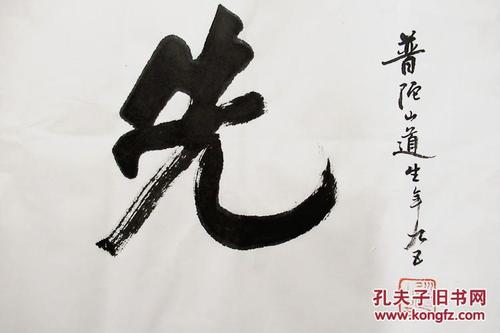 先
普陀山道生年九五
孔夫子旧书网
www.kongfz.com